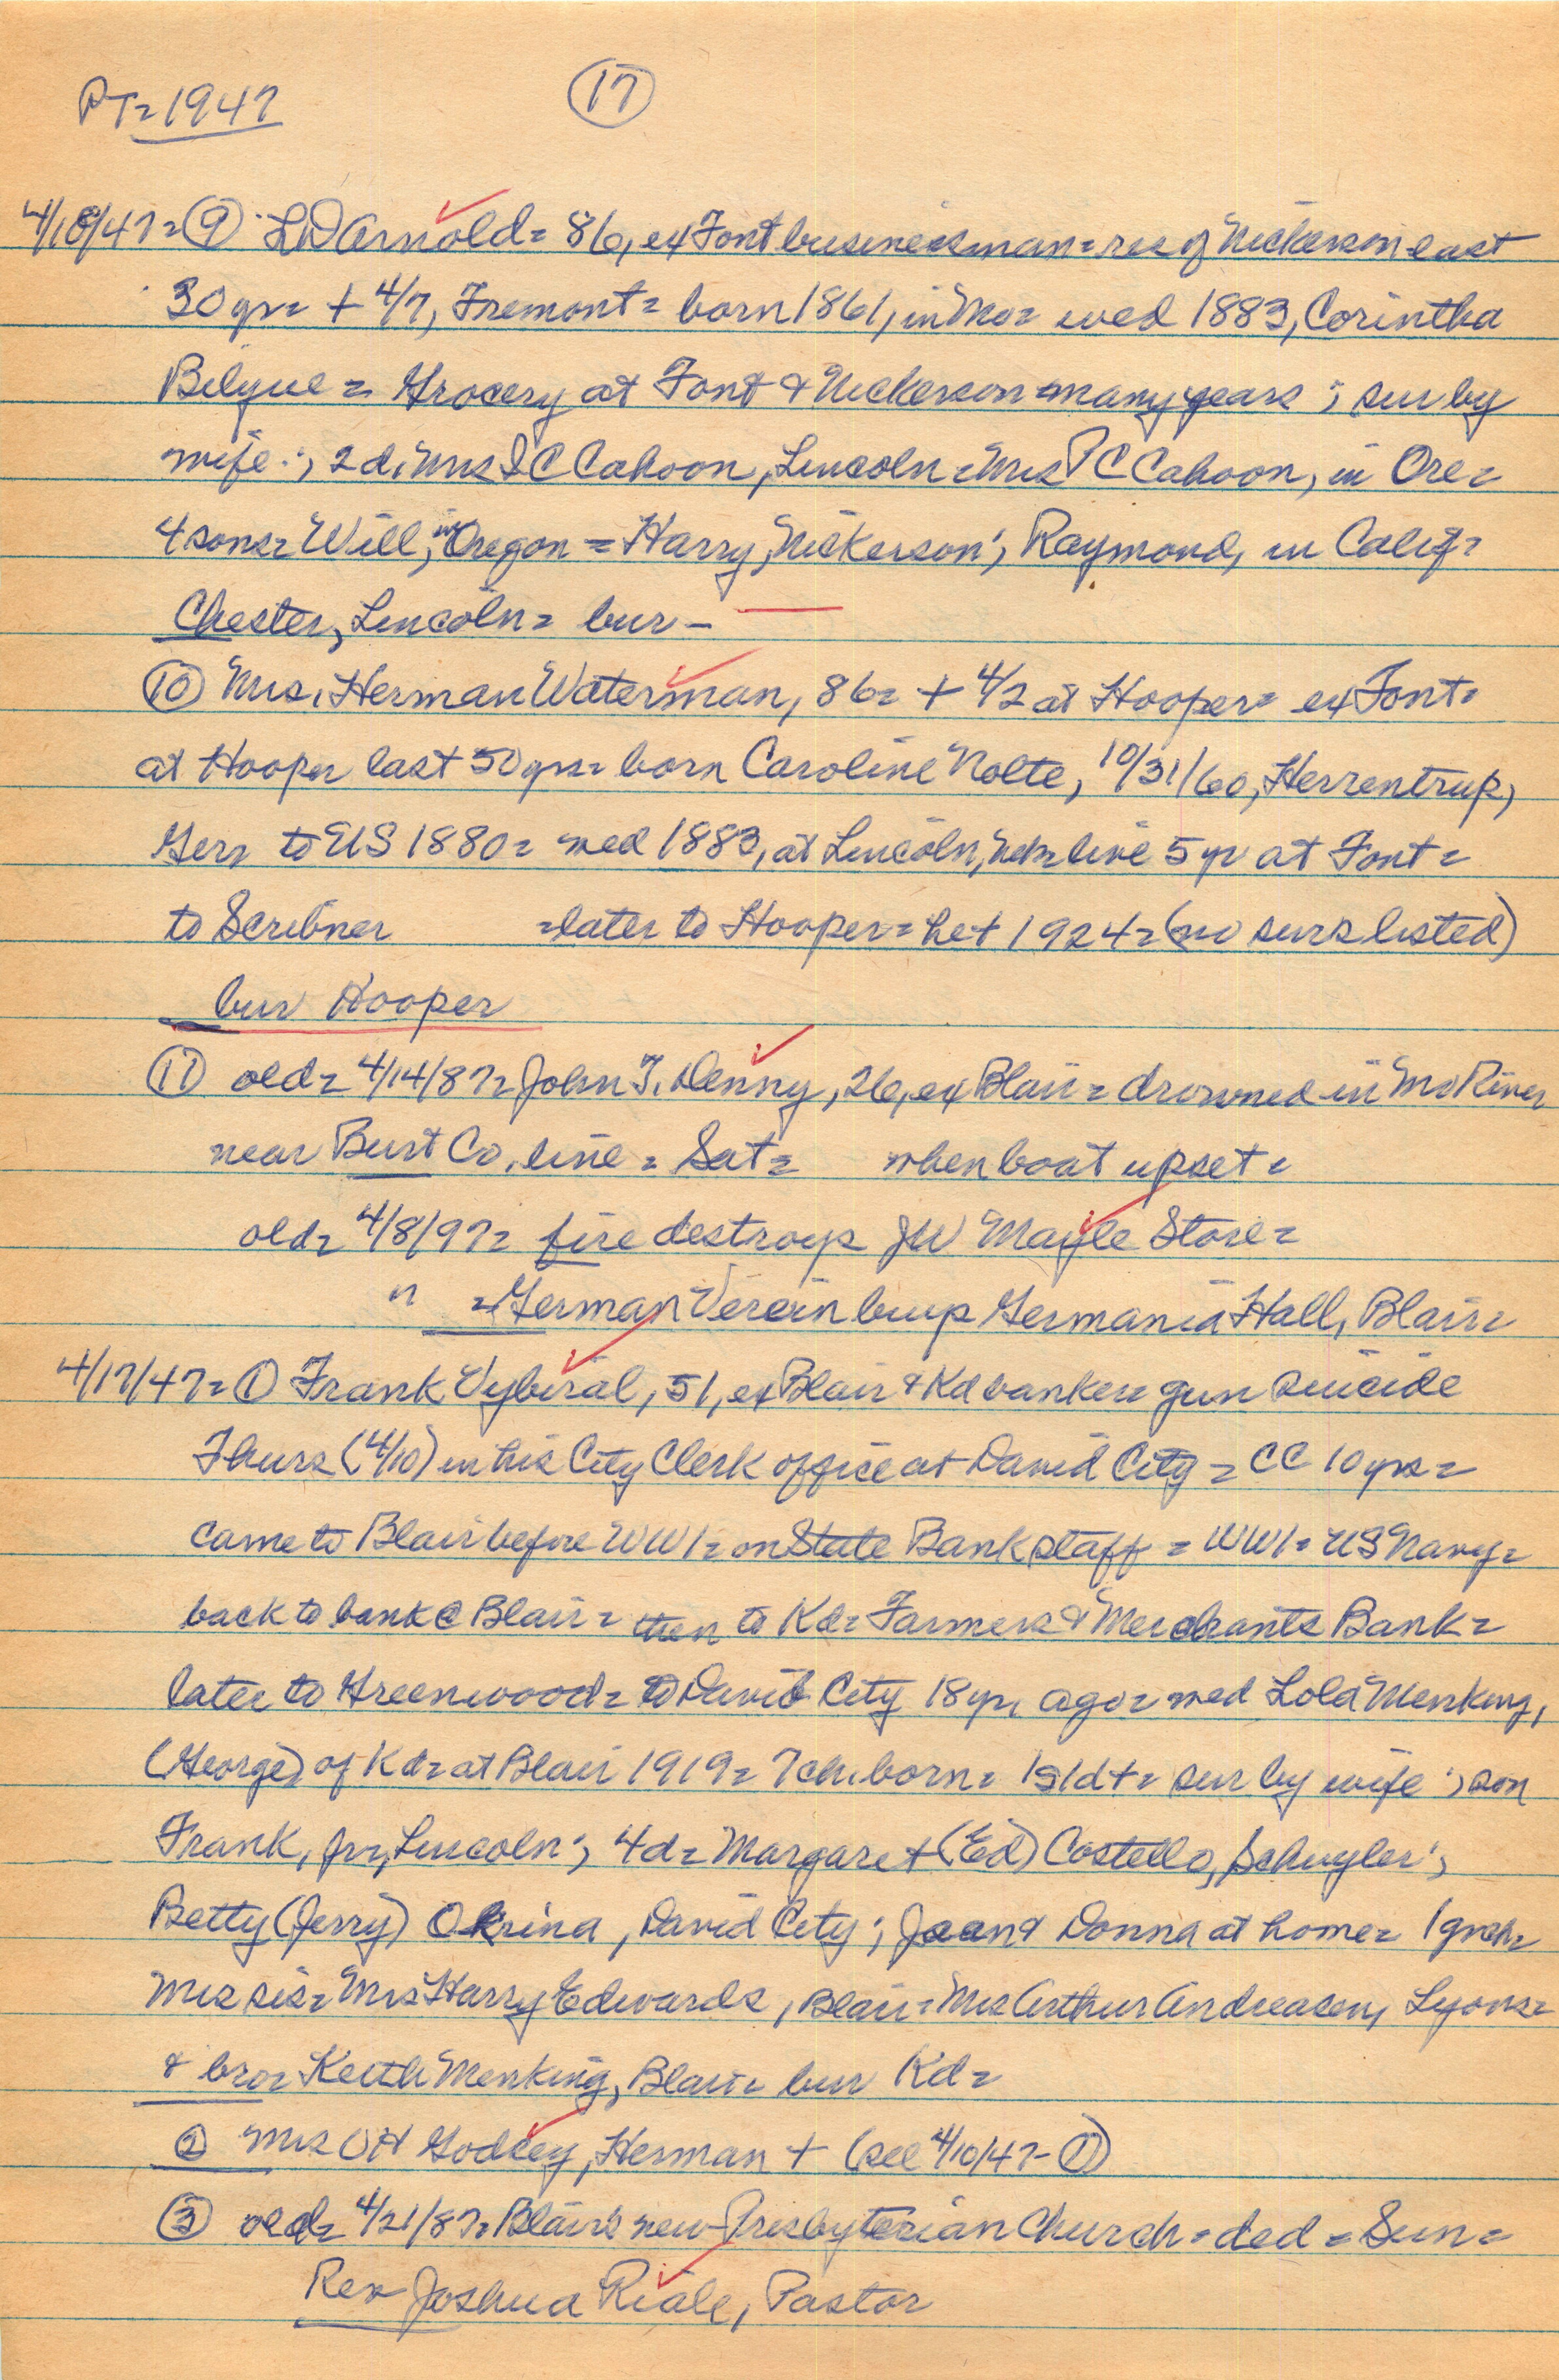 PT=1947 (17)
4/10/47=(9) LD Arnold= 86, ex Font businessman=res of Nickerson last
30 yr= + 4/7, Fremont= born 1861, in Mo= wed 1883, Corintha
Bilyue= Grocery at Font & Nickerson many years; sur by
wife; 2d. Mrs I C Cahoon, Lincoln=Mrs P C Cahoon, in Ore=
4 sons= Will, in Oregon = Harry, Nickerson; Raymond, in Calif=
Chester, Lincoln= bur —
(10) Mrs. Herman Waterman, 86= + 4/2 at Hooper= ex Font=
at Hooper last 50 yrs= born Caroline Nolte, 10/31/60, Herrentrup,
Ger= to US 1880= wed 1883, at Lincoln, Neb= live 5 yr at Font=
to Scribner =later to Hooper= he+ 1924=(no surs listed)
bur Hooper
(11) old= 4/14/87= John T. Denny, 26, ex Blair= drowned in Mo River
near Burt Co. line = Sat= when boat upset=
old= 4/8/97= fire destroys JW Mayle Store=
" =German Verein buys Germania Hall, Blair=
4/17/47=(1) Frank Vybiral, 51, ex Blair & Kd banker= gun suicide
Thurs (4/10) in his City Clerk office at David City = CC 10 yrs=
came to Blair before WW1= on State Bank staff = WW1= US Navy=
back to bank @ Blair= then to Kd= Farmers & Merchants Bank=
later to Greenwood= to David City 18 yr. ago= wed Lola Menking,
(George) of Kd= at Blair 1919= 7 ch. born= 1s1d+= sur by wife; son
Frank, Jr., Lincoln; 4d= Margaret (Ed) Costello, Schuyler;
Betty (Jerry) Okrina, David City; Joan & Donna at home= 1 grch=
Mrs sis= Mrs Harry Edwards, Blair=Mrs Arthur Andreasen, Lyons=
& bro= Keith Menking, Blair= bur Kd=
(2) Mrs OH Godsey, Herman + (see 4/10/47-(1))
(3) old= 4/21/87= Blair's new Presbyterian Church=ded = Sun=
Rev Joshua Riale, Pastor